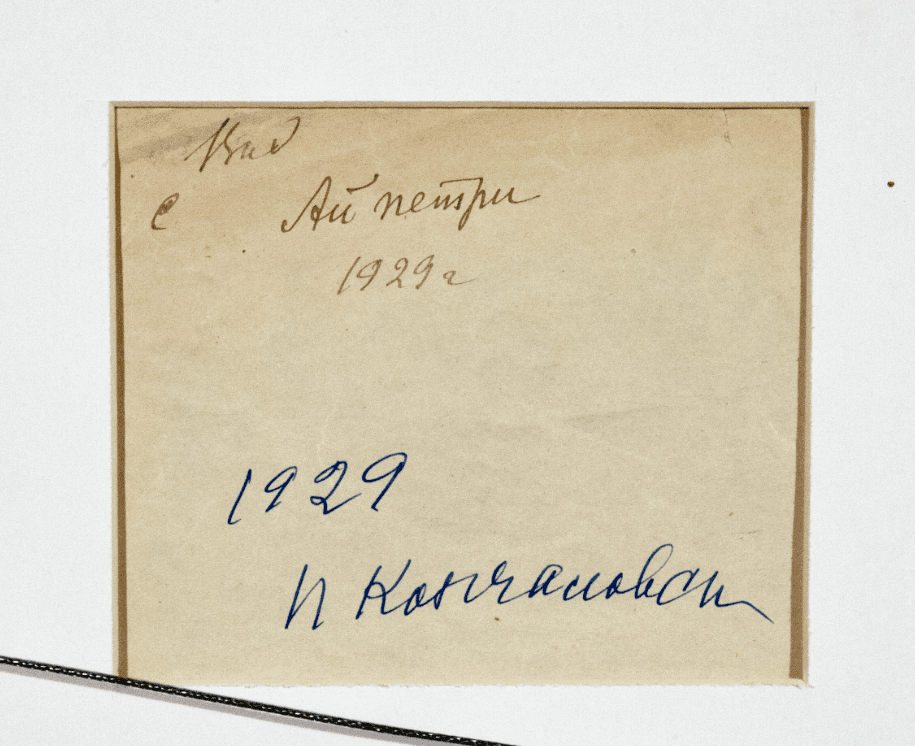 Вид
с Ай петри
1929 г
1929
П Кончаловски